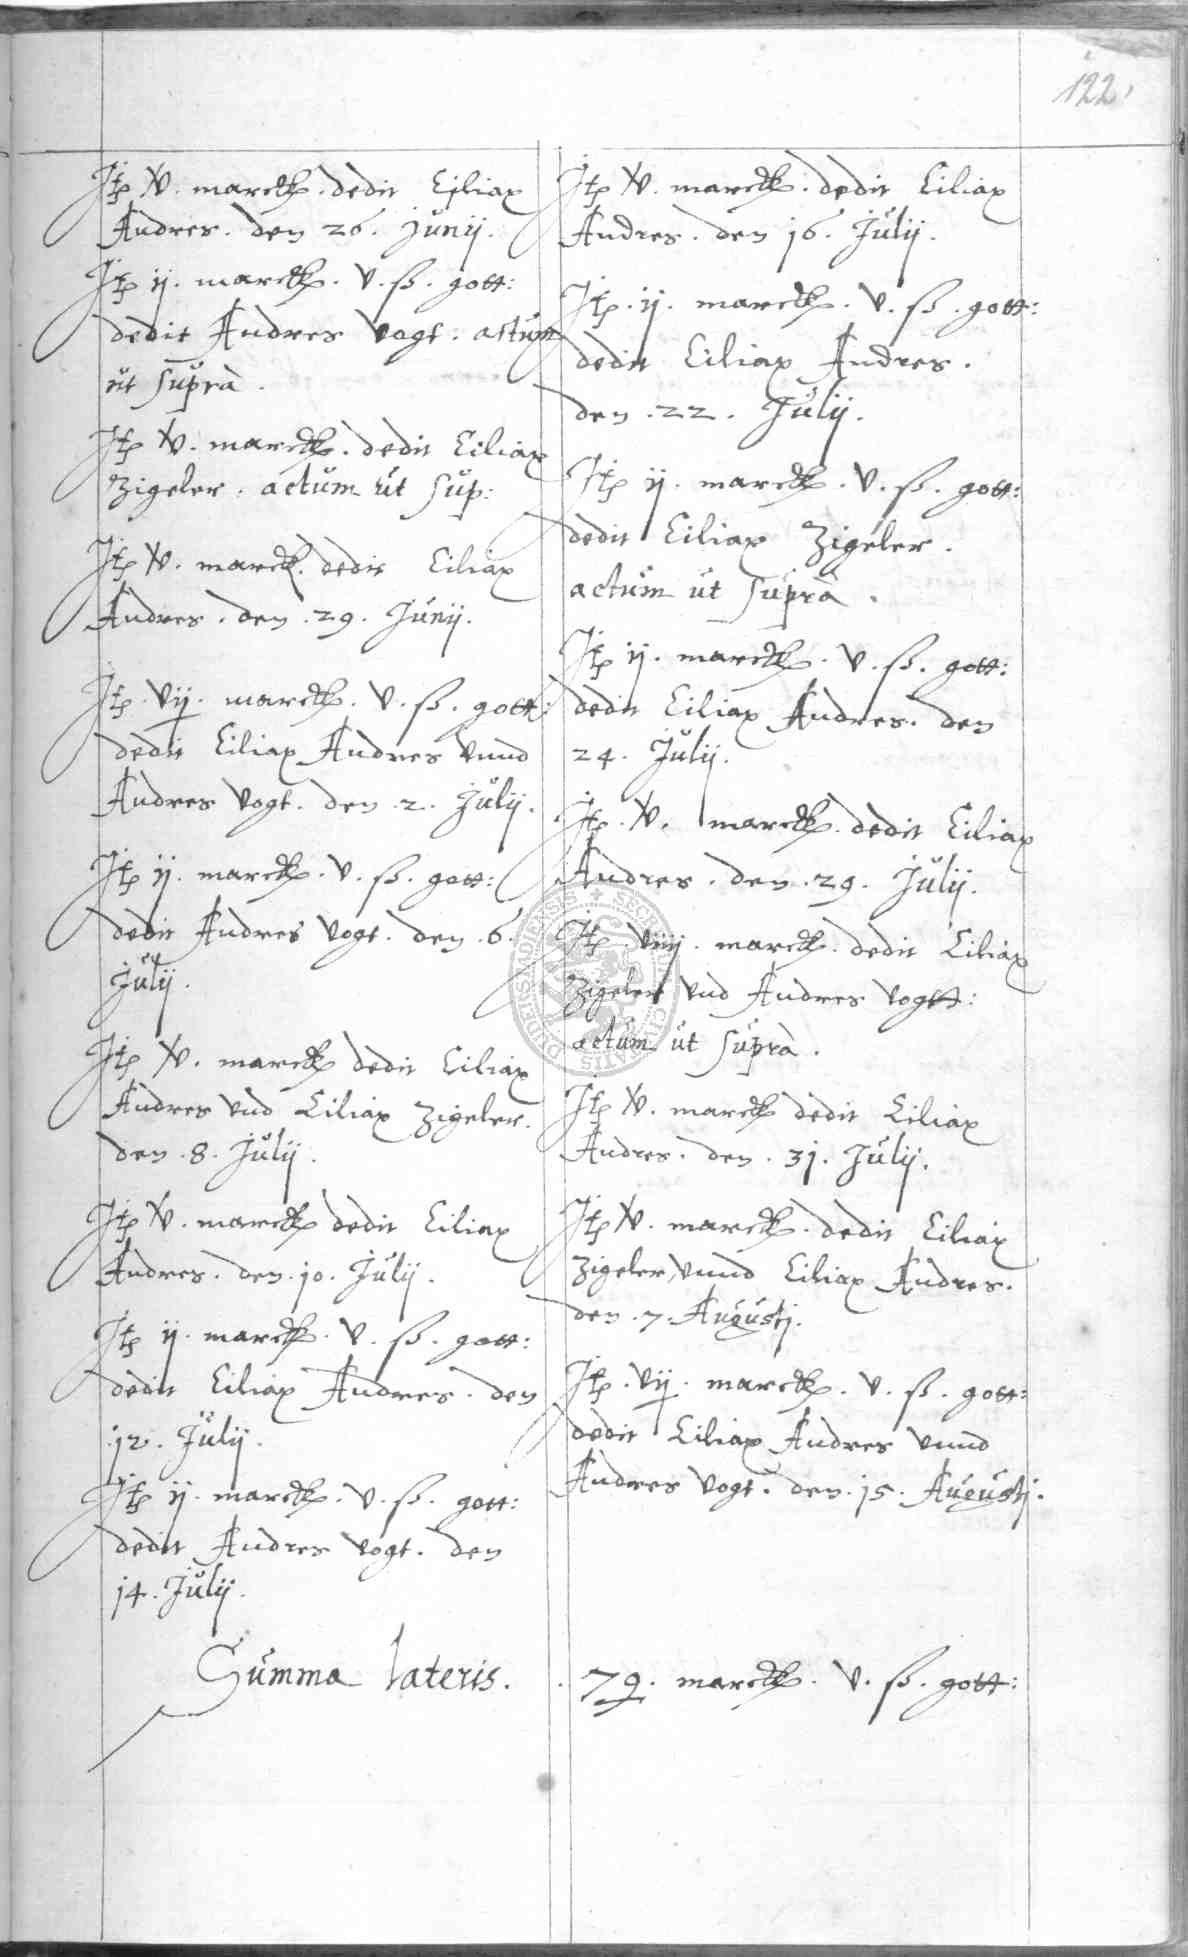 122
Itē V. marck. dedit Ciliax
Andres. den 26. Junij.
Itē ij. marck. V. ß. gott:
dedit Andres Vogt. actum
ut suprà.
Itē V. marck. dedit Ciliax
Zigeler. actum ut sup:
Itē V. marck. dedit Ciliax
Andres. den. 29. Junij.
Itē. Vij. marck. V. ß. gott:
dedit Ciliax Andres Vnnd
Andres Vogt. den. 2. Julij.
Itē ij. marck. V. ß. gott:
dedit Andres Vogt. den. 6.
Julij.
Itē V. marck dedit Ciliax
Andres Vnd Ciliax Zigeler.
den. 8. Julij.
Itē V. marck dedit Ciliax
Andres. den. 10. Julij.
Itē ij. marck. V. ß. gott:
dedit Ciliax Andres. den
12. Julij.
Itē ij. marck. V. ß. gott:
dedit Andres Vogt. den
14. Julij.
Itē V. marck. dedit Ciliax
Andres. den 16. Julij.
Itē. ij. marck. V. ß. gott:
dedit Ciliax Andres.
den. 22. Julij.
Itē ij. marck. V. ß. gott:
dedit Ciliax Zigeler.
actum ut suprà.
Itē ij. marck. V. ß. gott:
dedit Ciliax Andres. den
24. Julij.
Itē. V. marck. dedit Ciliax
Andres. den. 29. Julij.
Itē. marck. dedit Ciliax
Zigeler Vnd Andres Vogtt:
actum ut suprà.
Itē V. marck dedit Ciliax
Andres. den. 31. Julij.
Itē V. marck. dedit Ciliax
Zigeler, Vnnd Ciliax Andres.
den. 7. Augustj.
Itē. Vij. marck. V. ß. gott:
dedit Ciliax Andres Vnnd
Andres Vogt. den. 15. Augustj.
Summa lateris. 79. marck. V. ß. gott:
SECRETUM CIVITATIS DUDERSTADIENSIS